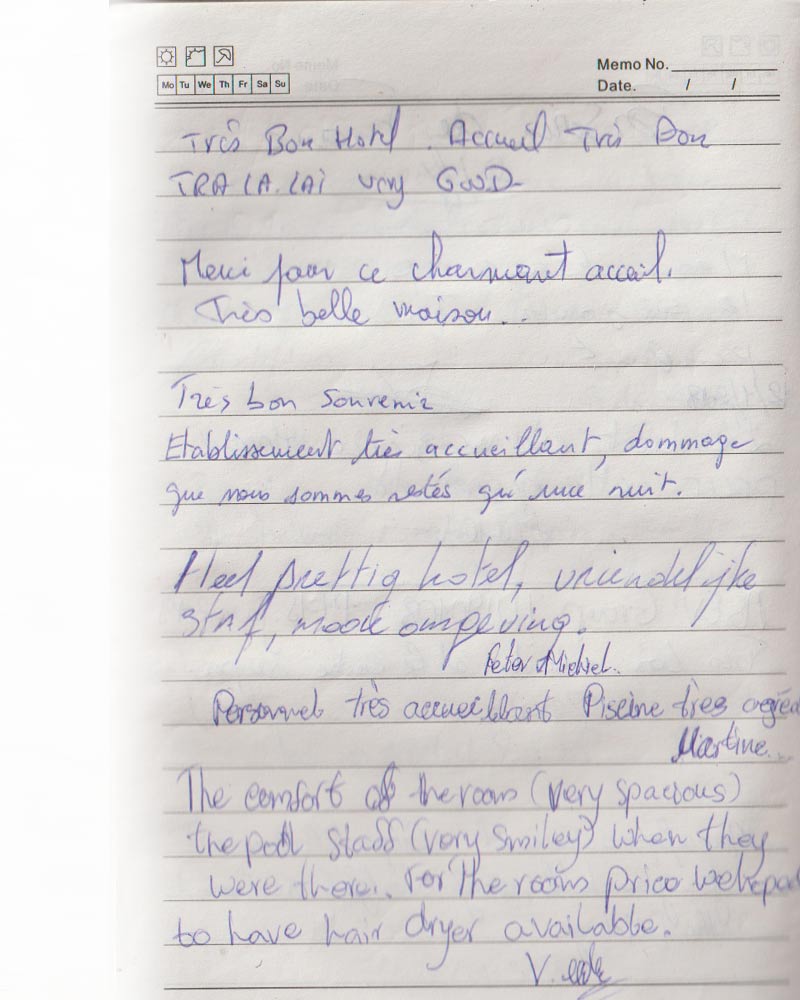 Mo Tu We Th Fr Sa Su
Memo No.
Date. / /
Très Bon Hotel. Accueil Très Bon
TRA LA. LAi very GOOD
Merci pour ce charmant accueil.
Très belle maison...
Très bon souvenir
Etablissement très accueillant, dommage
que nous sommes restés qu'une nuit.
Heel prettig hotel, vriendelijke
staf, mooie omgeving.
Peter Michiel.
Personnel très accueillant Piscine très
Martine..
The comfort of the room (very spacious)
the pool staff (very smiley) when they
were there. For the rooms price
to have hair dryer available.
V.